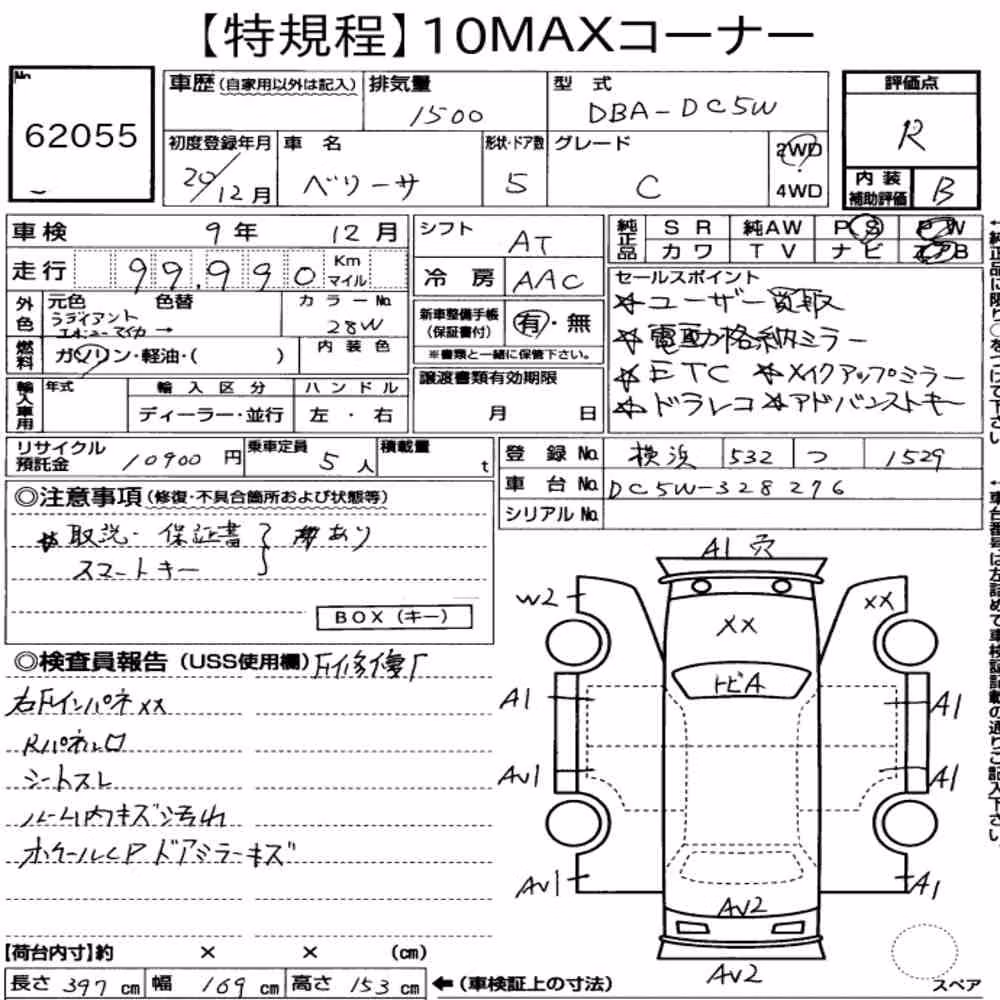 【特規程】10MAXコーナー
No. 62055
車歴(自家用以外は記入) 排気量 1500 型式 DBA-DC5W 評価点 R
初度登録年月 20/12月 車名 ベリーサ 形状・ドア数 5 グレード C 2WD 4WD 内装補助評価 B
車検 9年 12月
走行 99,990 Km マイル
外色 元色 ラディアント エボニーマイカ → 色替 カラーNo. 28W
燃料 ガソリン・軽油・( ) 内装色
輸入車用 年式 輸入区分 ディーラー・並行 ハンドル 左・右
シフト AT
冷房 AAC
新車整備手帳(保証書付) 有・無
※書類と一緒に保管下さい。
譲渡書類有効期限 月 日
純正品 SR 純AW PS PW
カワ TV ナビ
←純正品に限り○をつけて下さい
セールスポイント
☆ユーザー買取
☆電動格納ミラー
☆ETC ☆メイクアップミラー
☆ドラレコ ☆アドバンストキー
リサイクル預託金 10900円 乗車定員 5人 積載量 t
登録No. 横浜 532 つ 1529
車台No. DC5W-328276
シリアルNo.
←車台番号は左詰めで車検証記載の通りご記入下さい。
◎注意事項(修復・不具合箇所および状態等)
☆取説・保証書 あり
スマートキー
BOX(キー)
◎検査員報告(USS使用欄)
右Fインパネxx
Rパネル口
シートスレ
ルーム内キズ汚れ
ホイールCP ドアミラーキズ
A1 穴
W2
xx
xx
トビA
A1
A1
AV1
A1
AV1
A1
AV2
AV2
スペア
【荷台内寸】約 × × (cm)
長さ 397 cm 幅 169 cm 高さ 153 cm ←(車検証上の寸法)